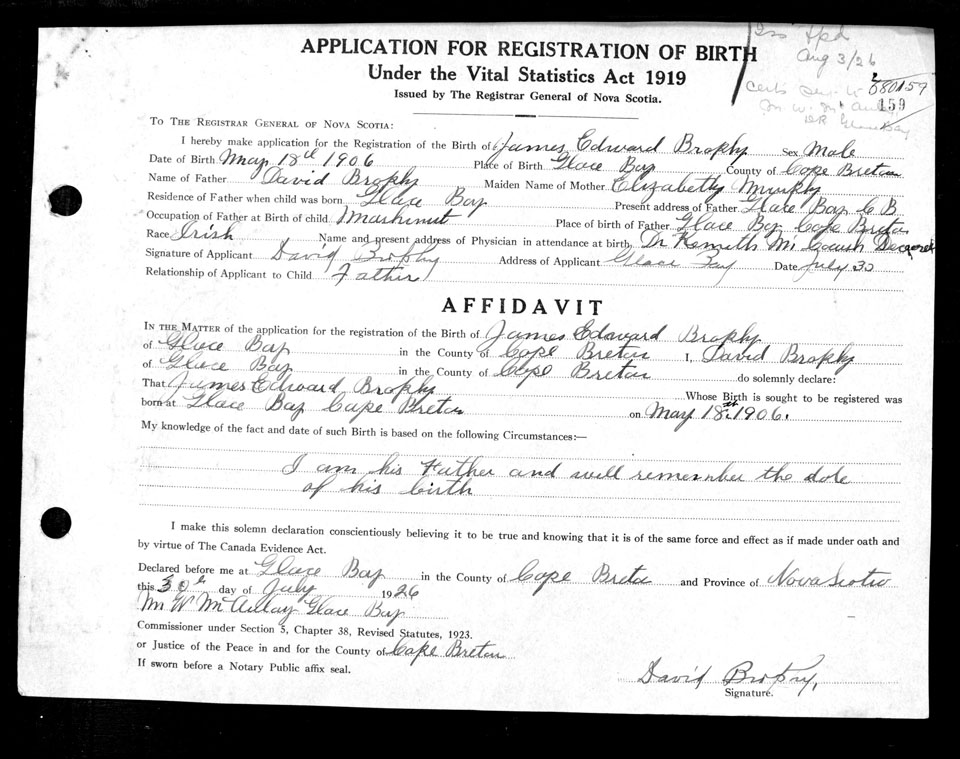 APPLICATION FOR REGISTRATION OF BIRTH
Under the Vital Statistics Act 1919
Issued by The Registrar General of Nova Scotia.
Aug 3/26
680159
159
To The Registrar General of Nova Scotia:
I hereby make application for the Registration of the Birth of James Edward Brophy Sex Male
Date of Birth May 18th 1906 Place of Birth Glace Bay County of Cape Breton
Name of Father David Brophy Maiden Name of Mother Elizabeth Murphy
Residence of Father when child was born Glace Bay Present address of Father Glace Bay C B
Occupation of Father at Birth of child Mashinist Place of birth of Father Glace Bay Cape Breton
Race Irish Name and present address of Physician in attendance at birth Dr Kenneth
Signature of Applicant David Brophy Address of Applicant Glace Bay Date July 30
Relationship of Applicant to Child Father
AFFIDAVIT
In the Matter of the application for the registration of the Birth of James Edward Brophy
of Glace Bay in the County of Cape Breton I, David Brophy
of Glace Bay in the County of Cape Breton do solemnly declare:
That James Edward Brophy Whose Birth is sought to be registered was
born at Glace Bay Cape Breton on May 18th 1906.
My knowledge of the fact and date of such Birth is based on the following Circumstances:—
I am his Father and will remember the date
of his birth
I make this solemn declaration conscientiously believing it to be true and knowing that it is of the same force and effect as if made under oath and
by virtue of The Canada Evidence Act.
Declared before me at Glace Bay in the County of Cape Breton and Province of Nova Scotia
this 30th day of July 1926
M W McAulay Glace Bay
Commissioner under Section 5, Chapter 38, Revised Statutes, 1923.
or Justice of the Peace in and for the County of Cape Breton
If sworn before a Notary Public affix seal.
David Brophy,
Signature.